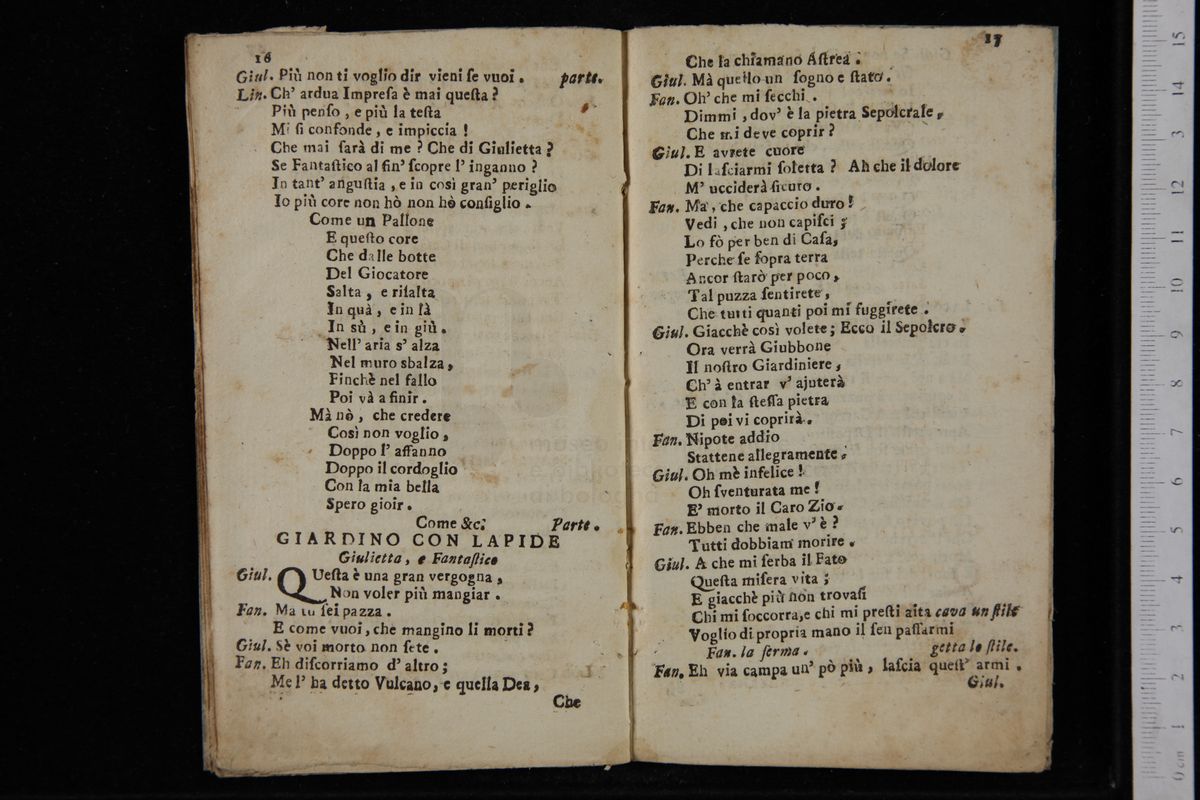 16
Giul. Più non ti voglio dir vieni ſe vuoi. parte.
Lin. Ch' ardua Impreſa è mai queſta?
Più penſo, e più la teſta
Mi ſi confonde, e impiccia!
Che mai ſarà di me? Che di Giulietta?
Se Fantaſtico al fin' ſcopre l' inganno?
In tant' anguſtia, e in così gran' periglio
Io più core non hò non hò conſiglio.
Come un Pallone
E queſto core
Che dalle botte
Del Giocatore
Salta, e riſalta
In quà, e in là
In sù, e in giù.
Nell' aria s' alza
Nel muro sbalza,
Finchè nel fallo
Poi và a finir.
Mà nò, che credere
Così non voglio,
Doppo l' affanno
Doppo il cordoglio
Con la mia bella
Spero gioir.
Come &c. Parte.
GIARDINO CON LAPIDE
Giulietta, e Fantaſtico
Giul. QUeſta è una gran vergogna,
Non voler più mangiar.
Fan. Ma tu ſei pazza.
E come vuoi, che mangino li morti?
Giul. Sè voi morto non ſete.
Fan. Eh diſcorriamo d' altro;
Me l' ha detto Vulcano, e quella Dea,
Che
17
Che la chiamano Aſtrea.
Giul. Mà quello un ſogno e ſtato.
Fan. Oh' che mi ſecchi.
Dimmi, dov' è la pietra Sepolcrale,
Che mi deve coprir?
Giul. E avrete cuore
Di laſciarmi ſoletta? Ah che il dolore
M' ucciderà ſicuro.
Fan. Ma', che capaccio duro!
Vedi, che non capiſci;
Lo fò per ben di Caſa,
Perche ſe ſopra terra
Ancor ſtarò per poco,
Tal puzza ſentirete,
Che tutti quanti poi mi fuggirete.
Giul. Giacchè così volete; Ecco il Sepolcro.
Ora verrà Giubbone
Il noſtro Giardiniere,
Ch' à entrar v' ajuterà
E con la ſteſſa pietra
Di poi vi coprirà.
Fan. Nipote addio
Stattene allegramente.
Giul. Oh mè infelice!
Oh ſventurata me!
E' morto il Caro Zio.
Fan. Ebben che male v' è?
Tutti dobbiam morire.
Giul. A che mi ſerba il Fato
Queſta miſera vita;
E giacchè più non trovaſi
Chi mi ſoccorra, e chi mi preſti aita cava un ſtile
Voglio di propria mano il ſen paſſarmi
Fan. la ferma. getta lo ſtile.
Fan. Eh via campa un' pò più, laſcia queſt' armi.
Giul.